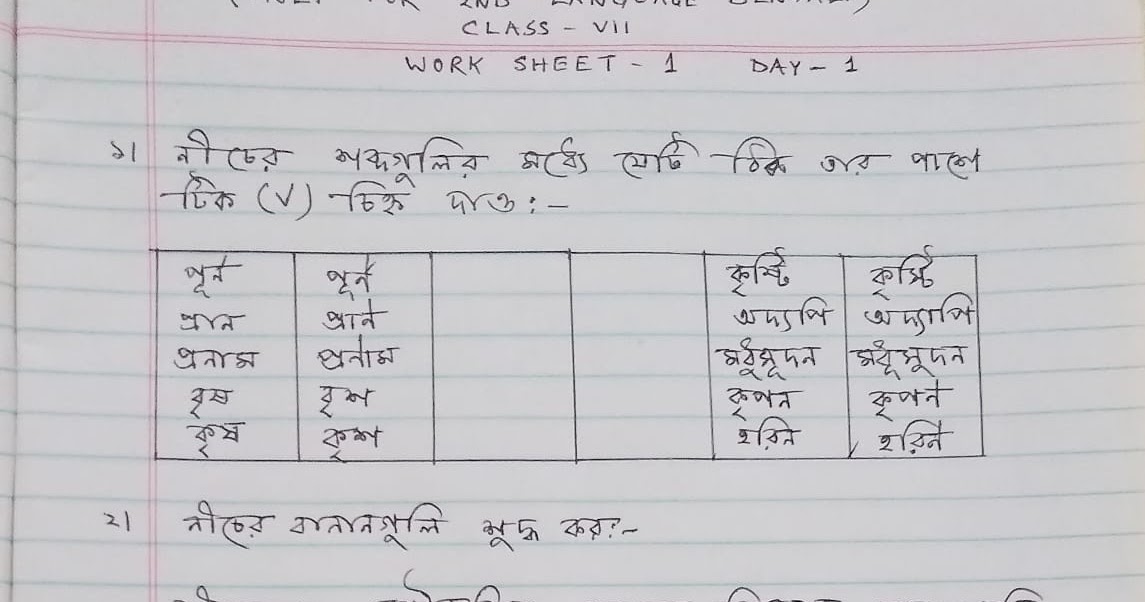 CLASS - VII
WORK SHEET - 1 DAY - 1
১। নীচের শব্দগুলির মধ্যে যেটি ঠিক তার পাশে
টিক (√) চিহ্ন দাও :-
পূর্ন পূর্ণ কৃষ্টি কৃস্টি
প্রান প্রাণ অদ্যপি অদ্যাপি
প্রনাম প্রণাম মধুসূদন মধূসূদন
বৃষ বৃশ কৃপন কৃপণ
কৃষ কৃশ হরিন হরিণ
২। নীচের বানানগুলি শুদ্ধ কর:-